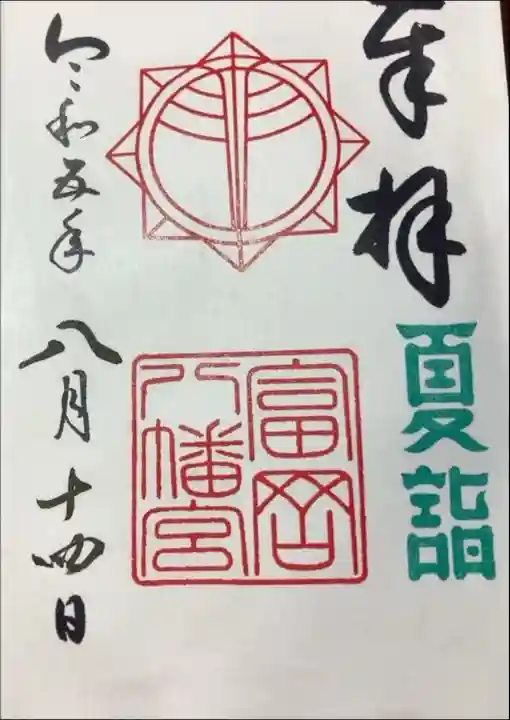 奉拝
夏詣
富岡
八幡宮
令和五年 八月十四日